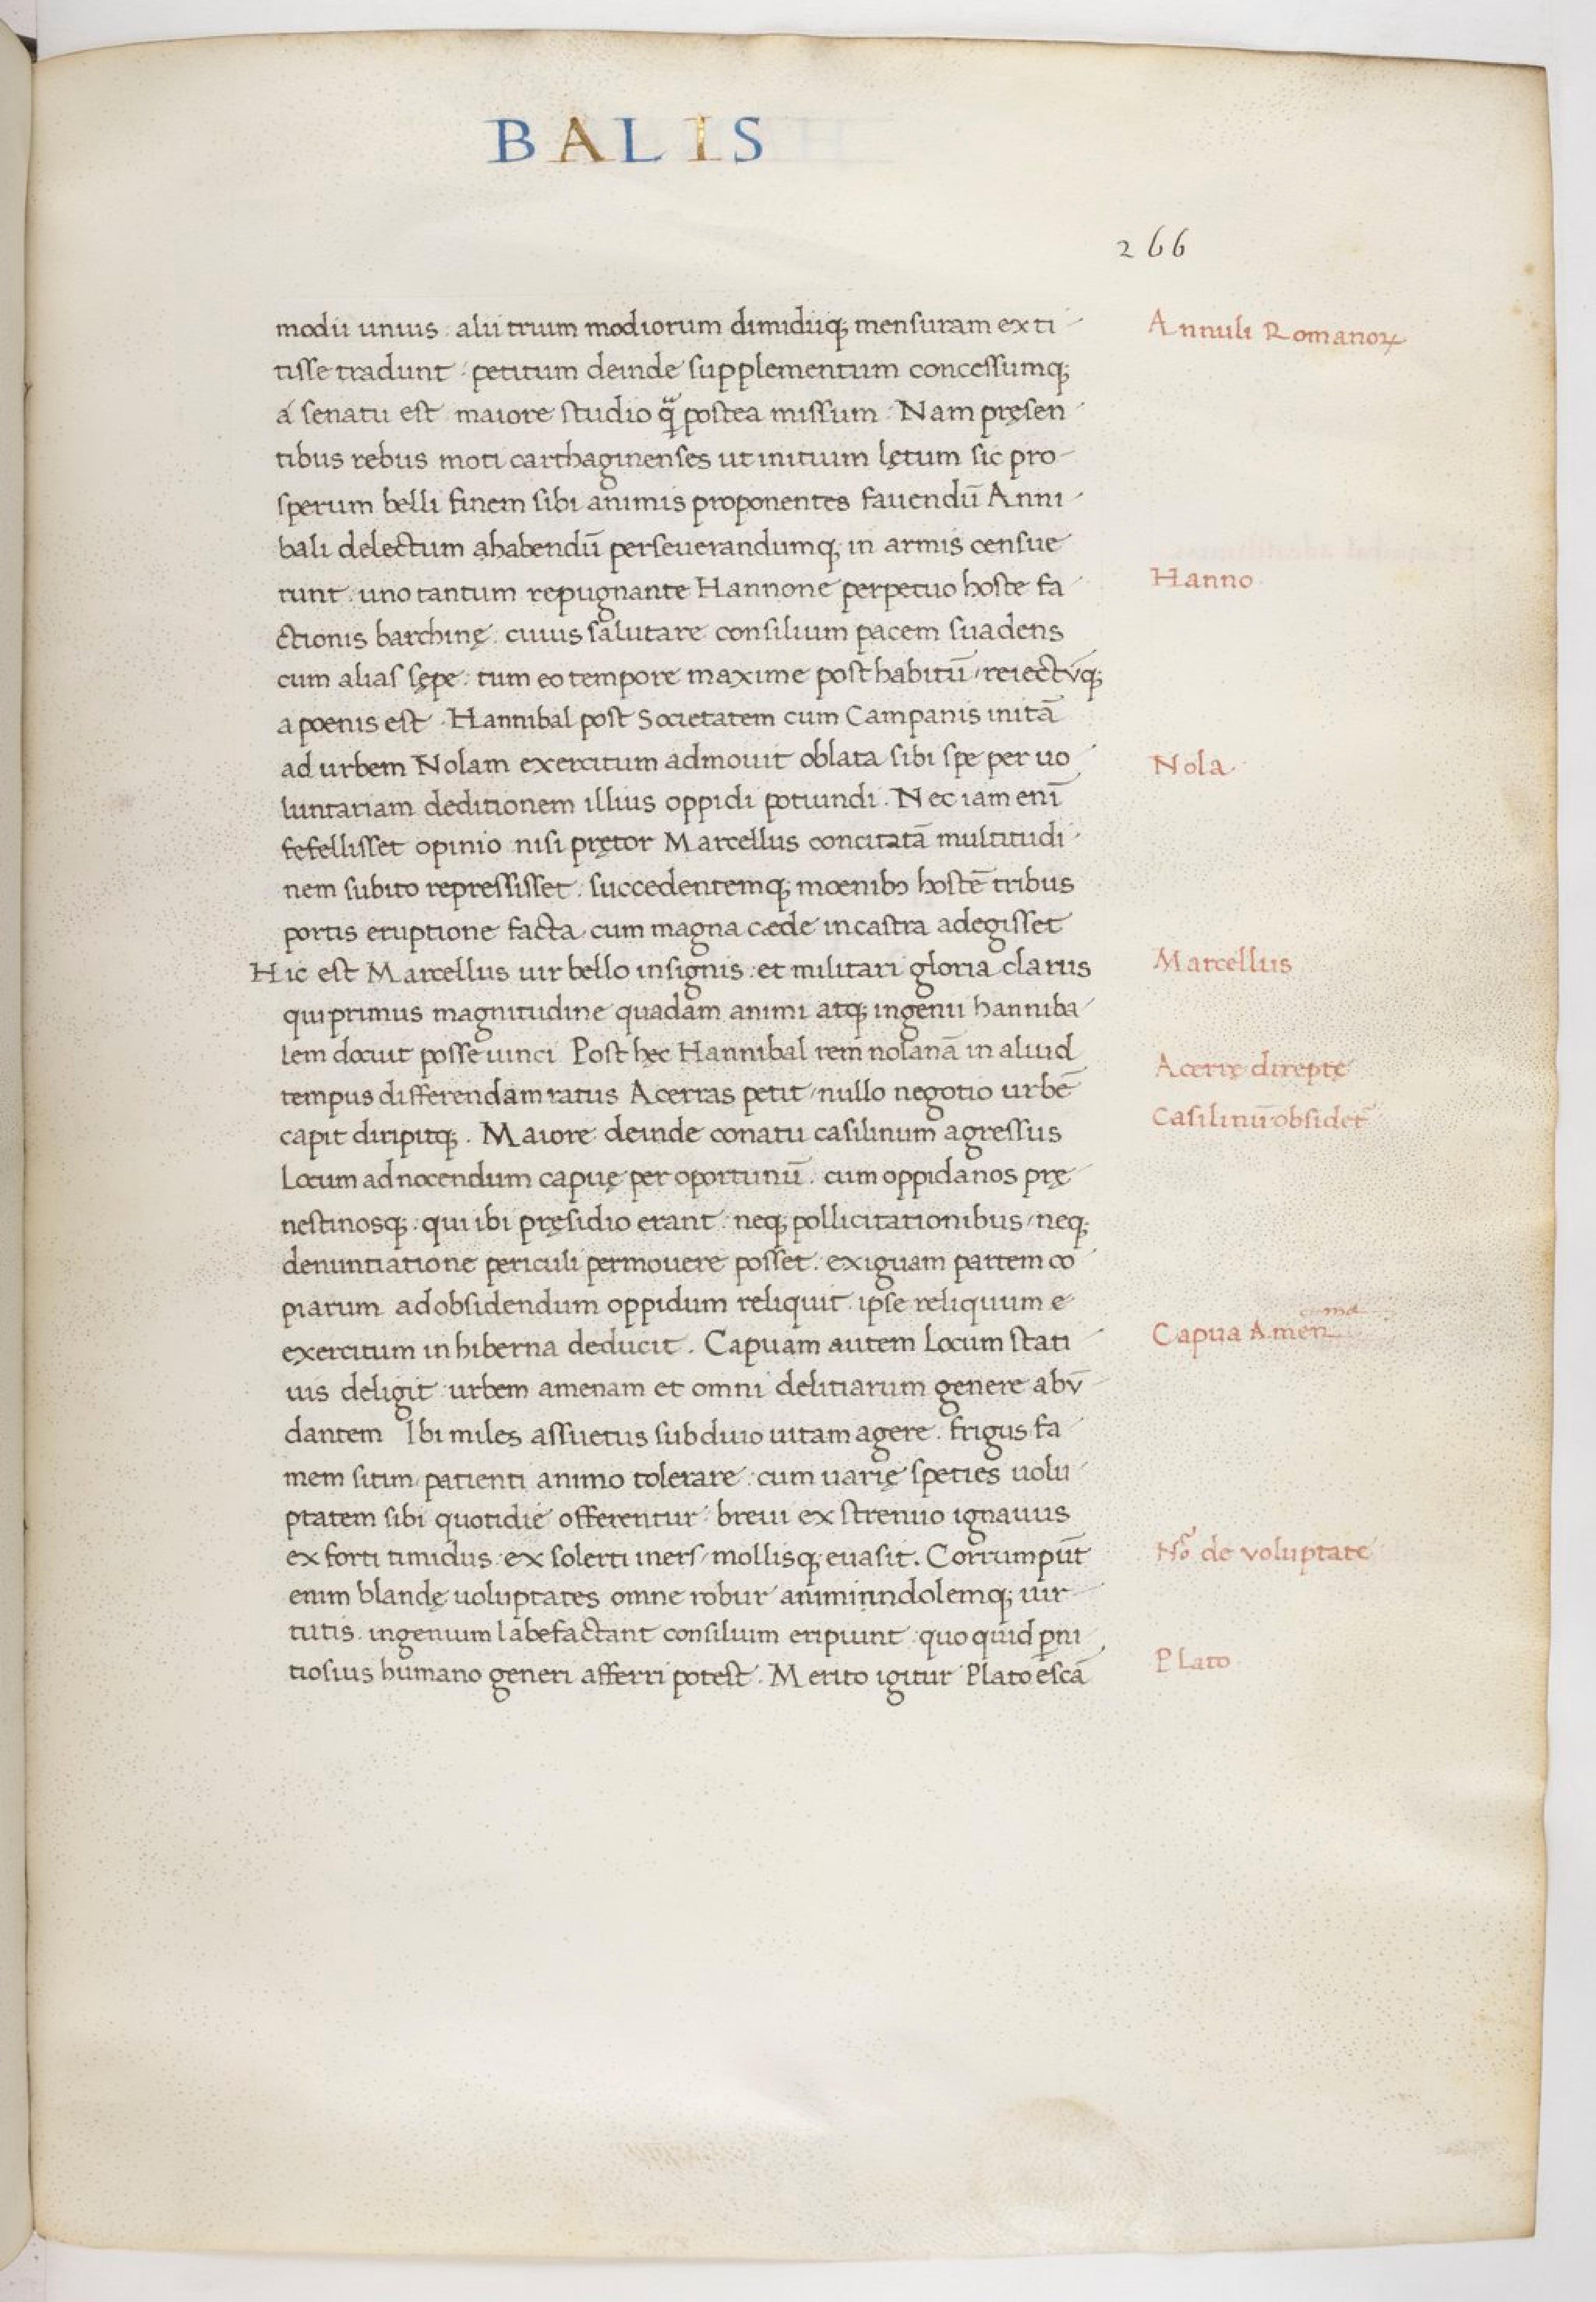 BALIS
266
modii unius : alii trium modiorum dimidiiq; mensuram exti
tisse tradunt : petitum deinde supplementum concessumq;
á senatu est maiore studio q̃ postea missum . Nam pręsen
tibus rebus moti carthaginenses ut initium lętum sic pro-
sperum belli finem sibi animis proponentes fauendū Anni
bali delectum ahabendū perseuerandumq; in armis censue
runt . uno tantum repugnante Hannone perpetuo hoste fa
ctionis barchinę . cuius salutare consilium pacem suadens
cum alias sępe . tum eo tempore maxime posthabitū / reiectv̄q;
a poenis est . Hannibal post Societatem cum Campanis initā
ad urbem Nolam exercitum admouit oblata sibi spe per uo
luntariam deditionem illius oppidi potiundi . Nec iam enī
fefellisset opinio nisi prętor Marcellus concitatā multitudi
nem subito repressisset . succedentemq; moenibꝰ hostē tribus
portis eruptione facta cum magna cæde in castra adegisset
Hic est Marcellus uir bello insignis : et militari gloria clarus
qui primus magnitudine quadam animi atq; ingenii hanniba
lem docuit posse uinci Post hęc Hannibal rem nolanā in aliud
tempus differendam ratus Acerras petit / nullo negotio urbē
capit diripitq; . Maiore deinde conatu casilinum agressus
Locum ad nocendum capuę per oportunū . cum oppidanos prę
nestinosq; . qui ibi pręsidio erant . neq; pollicitationibus / neq;
denuntiatione periculi permouere posset . exiguam partem co
piarum ad obsidendum oppidum reliquit . ipse reliquum e
exercitum in hiberna deducit . Capuam autem Locum stati
uis deligit urbem amenam et omni delitiarum genere abv̄
dantem Ibi miles assuetus sub diuio uitam agere . frigus fa
mem sitim patienti animo tolerare : cum uarię speties uolu
ptatem sibi quotidie offerentur : breui ex strenuo ignauus
ex forti timidus . ex solerti iners / mollisq; euasit . Corrumpūt
enim blandę uoluptates omne robur animi indolemq; uir
tutis . ingenium labefactant consilium eripiunt quo quid ꝑni
tiosius humano generi afferri potest . Merito igitur Plato escā
Annuli Romanoꝝ
Hanno
Nola
Marcellus
Acerrę direptę
Casilinū obsidet᷑
Capua Amen
Nͦ de voluptate
Plato